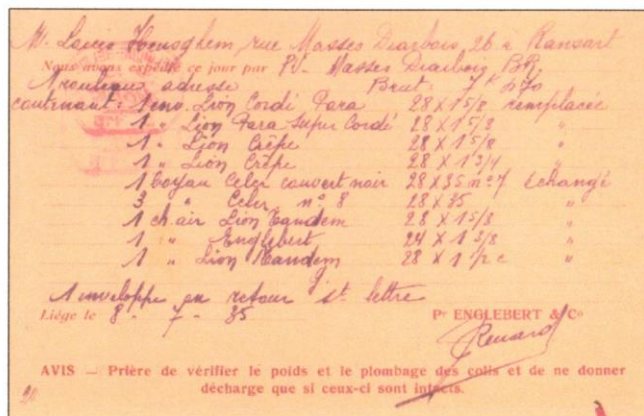 M. Louis Henseghem, rue Masses Diarbois, 26 à Ransart
Nous avons expédié ce jour par P.V. Masses Diarbois
1 rouleau adresse Brut: 7 k
contenant: 1 env. Lion Cordé Para 28 x 1 5/8 remplacée
1 " Lion Para Super Cordé 28 x 1 5/8 "
1 " Lion Crêpe 28 x 1 5/8 "
1 " Lion Crêpe 28 x 1 3/4 "
1 boyau Celer couvert noir 28 x 35 n° 7 échangé
3 " Celer n° 8 28 x 35 "
1 ch. air Lion Tandem 28 x 1 5/8 "
1 " Englebert 24 x 1 3/8 "
1 " Lion Tandem 28 x 1 1/2 c "
1 enveloppe en retour st. lettre
Liége le 8 - 7 - 35 Pr ENGLEBERT & Co
Renard
AVIS — Prière de vérifier le poids et le plombage des colis et de ne donner
décharge que si ceux-ci sont intacts.